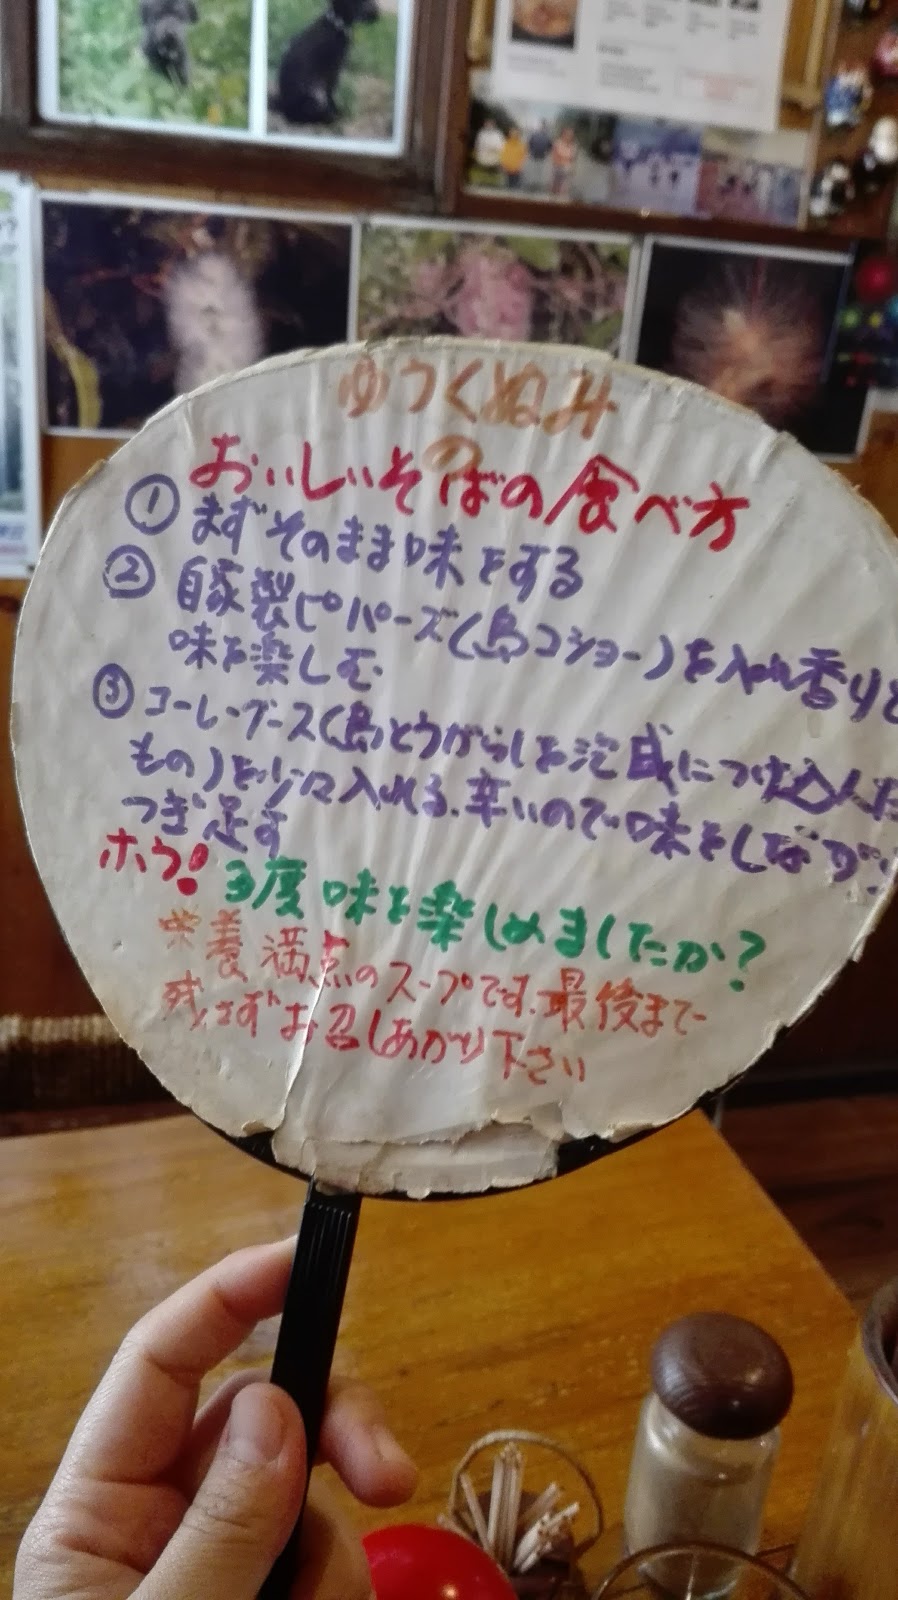 ゆうくぬみ
の
おいしいそばの食べ方
① まずそのまま味をする
② 自家製ピパーズ(島コショー)を入れ香りと
味を楽しむ
③ コーレーグース(島とうがらしを泡盛につけ込んだ
もの)を少々入れる.辛いので味をしながら
つぎ足す
ホラ! 3度味を楽しめましたか?
栄養満点のスープです.最後まで
残さずお召しあがり下さい